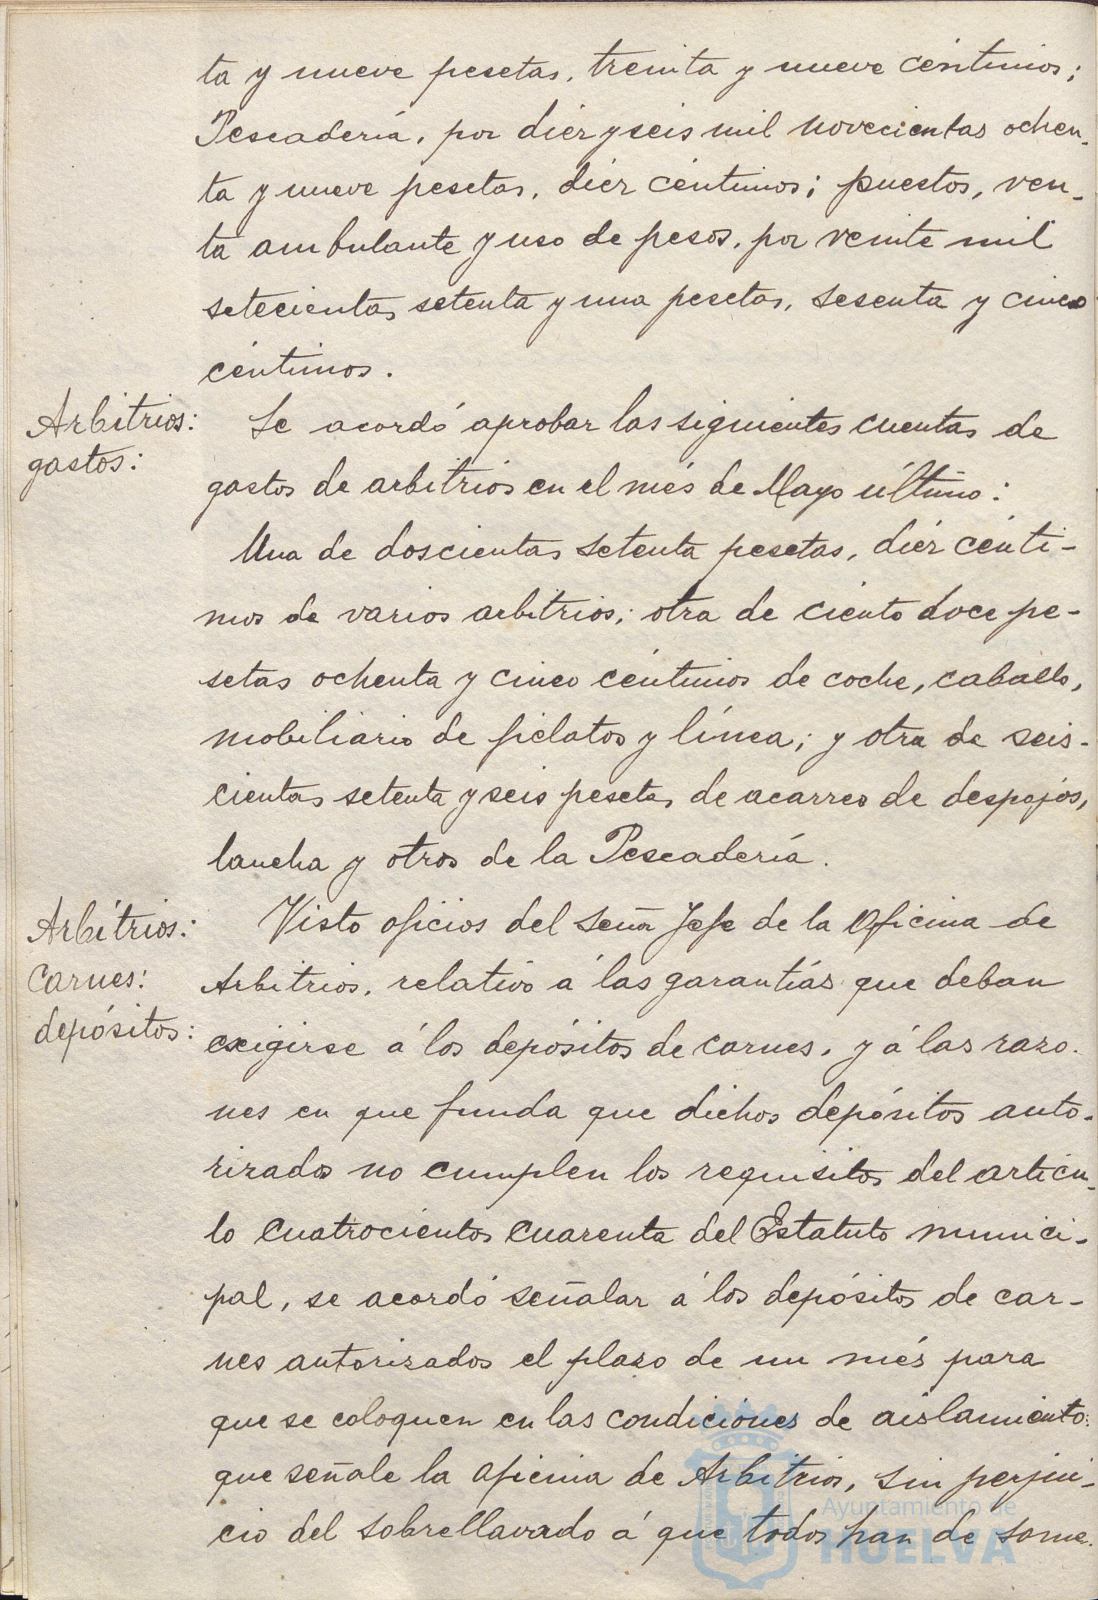 ta y nueve pesetas, treinta y nueve céntimos;
Pescadería, por diez y seis mil novecientas ochen-
ta y nueve pesetas, diez céntimos; puestos, ven-
ta ambulante y uso de pesos, por veinte mil
setecientas setenta y una pesetas, sesenta y cinco
céntimos.
Arbitrios:
gastos:
Se acordó aprobar las siguientes cuentas de
gastos de arbitrios en el més de Mayo último:
Una de doscientas setenta pesetas, diez cénti-
mos de varios arbitrios; otra de ciento doce pe-
setas ochenta y cinco céntimos de coche, caballo,
mobiliario de fielatos y línea; y otra de seis-
cientas setenta y seis pesetas de acarreo de despojos,
lancha y otros de la Pescadería.
Arbítrios:
Carnes:
depósitos:
Visto oficios del Señor Jefe de la Oficina de
Arbitrios, relativo á las garantías que deban
exigirse á los depósitos de carnes, y á las razo-
nes en que funda que dichos depósitos auto-
rizados no cumplen los requisitos del artícu-
lo cuatrocientos cuarenta del Estatuto munici-
pal, se acordó señalar á los depósitos de car-
nes autorizados el plazo de un més para
que se coloquen en las condiciones de aislamiento
que señale la Oficina de Arbitrios, sin perjui-
cio del sobrellavado á que todos han de some-
Ayuntamiento de
HUELVA